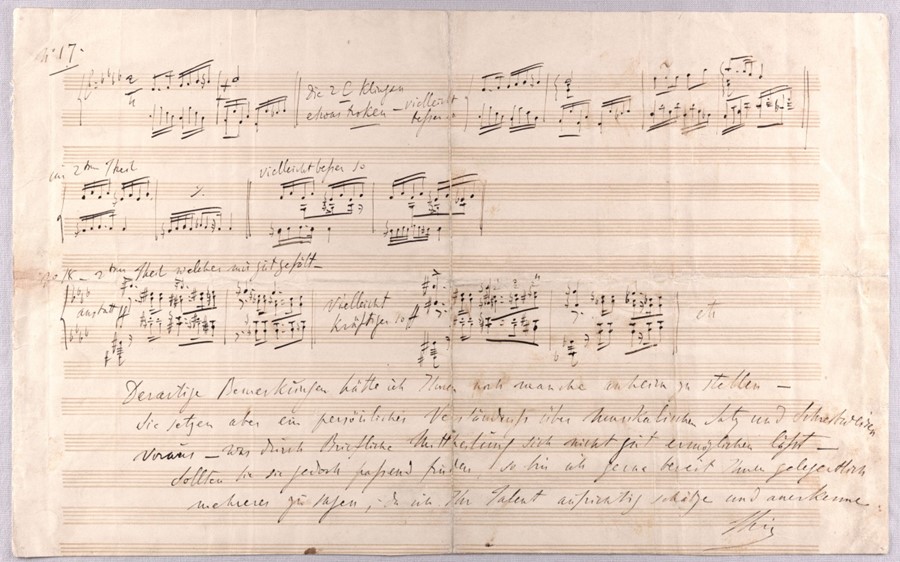 No 17.
Die 2 C Klingen
etwas trocken – vielleicht
besser so
im 2ten Theil
vielleicht besser so
No 18 – 2ten Theil welcher mir gut gefällt –
anstatt
ff
Vielleicht
kräftiger so ff
etc
Derartige Bemerkungen hätte ich Ihnen noch manche anheim zu stellen –
Sie setzen aber ein persönliches Verständniss über Musikalischen Satz und
voraus – was durch Briefliche Mittheilung sich nicht gut ermöglichen läßt –
Sollten Sie sie jedoch passend finden so bin ich gerne bereit Ihnen gelegentlich
mehreres zu sagen, da ich Ihr Talent aufrichtig schätze und anerkenne.